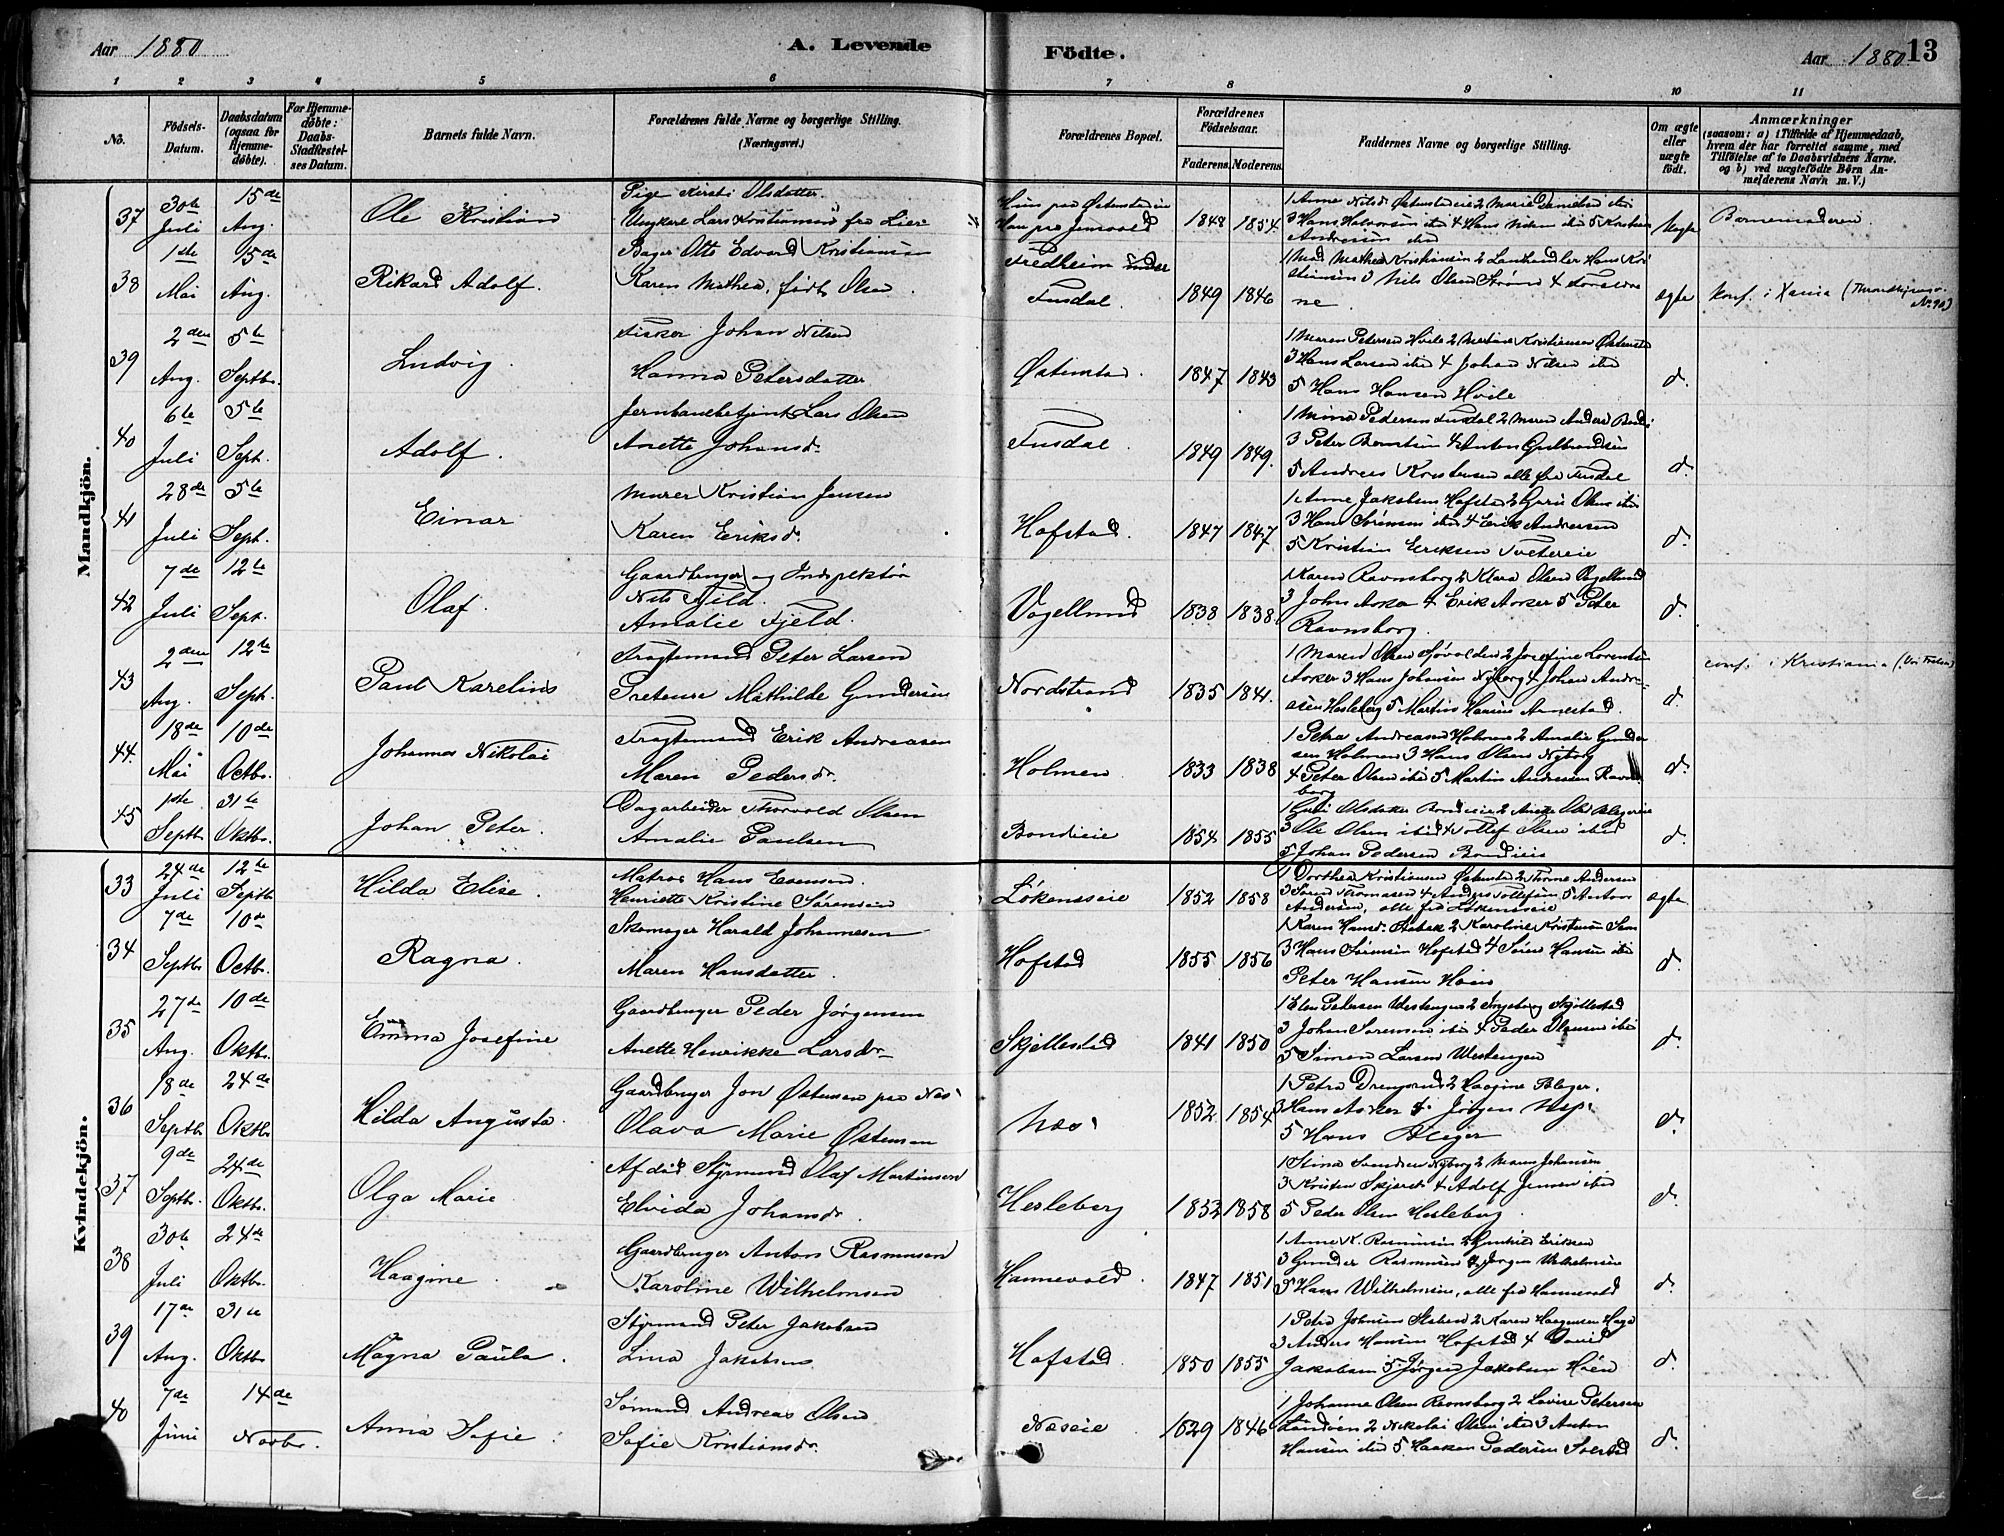 Aar 1880 A. Levende Födte. Aar 1880 13
1 2 3 4 5 6 7 8 9 10 11
No.
Födsels-Datum.
Daabsdatum (ogsaa for Hjemme-döbte).
For Hjemme-döbte: Daabs-Stadfæstelses Datum.
Barnets fulde Navn.
Forældrenes fulde Navne og borgerlige Stilling. (Næringsvei.)
Forældrenes Bopæl.
Forældrenes Födselsaar.
Faderens. Moderens.
Faddernes Navne og borgerlige Stilling.
Om ægte eller uægte födt.
Anmærkninger
(saasom: a) i Tilfælde af Hjemmedaab,
hvem der har forrettet samme, med
Tilföielse af to Daabsvidners Navne.
og b) ved uægtefödte Börn An-
melderens Navn m. V.)
Mandkjön.
37 30te Juli 15de Aug. Ole Kristian
Pige Kirsti Olsdatter
Ungkarl Lars Kristiansen fra Lier
1848 1854
3 Hans Halvorsen ibid
Uægte Barnemoderen.
38 1ste Mai 15de Aug. Rikard Adolf.
Bager Otto Edvard Kristiansen
Karen Mathea, født Olsen
Fredheim under
Fusdal. 1849 1846
1 Mad. Mathea Kristiansen 2 Lanhandler Hans Kri-
stiansen 3 Nils Olsen Strøm 4 Forældre
ne
ægte konf. i Xania
39 2den Aug. 5te Septbr. Ludvig.
Fisker Johan Nilsen
Hanna Petersdatter
Østenstad. 1847 1843
1 Maren Petersen Hvile 2 Martine Kristiansen Østenstad
3 Hans Larsen ibid 4 Johan Nilsen ibid
5 Hans Hansen Hvile
d.
40 6te Juli 5te Sept. Adolf.
Jernbanebetjent Lars Olsen
Anette Johansdr.
Fusdal. 1849 1849.
1 Mina Pedersen Fusdal 2 Maren
3 Peter Berntsen 4 Anton Gulbrandsen
5 Andreas Kristensen alle fra Fusdal
d.
41 28de Juli 5te Sept. Einar
Murer Kristian Jensen
Karen Eriksdr.
Hofstad. 1847 1847
1 Anne Jakobsen Hofstad 2 Guri Olsen ibid
3 Hans Sørensen ibid 4 Erik Andersen
5 Kristian Eriksen Tvetereie
d.
42 7de Juli 12te Sept. Olaf.
Gaardbruger og Inspektør
Nils Fjeld.
Amalie Fjeld.
Vogellund 1838 1838
1 Karen Ravnsborg 2 Klara Olsen Vogellund
3 John Asker 4 Erik Asker 5 Peter
Ravnsborg.
d.
43 2den Aug. 12te Sept. Paul Karelius
Fragtemand Peter Larsen
Pretense Mathilde Gundersen
Nordstrand 1835 1841.
1 Maren Olsen Sjøvolden 2 Josefine Lorentsen
Asker 3 Hans Johansen Nyborg 4 Johan Andre-
asen Hesleberg 5 Martin Hansen Arnestad.
d. conf. i Kristiania
44. 18de Mai 10de Octbr. Johannes Nikolai
Fragtemand Erik Andreasen
Maren Pedersdr.
Holmen 1833 1838
1 Petra Andreasen Holmen 2 Amalie Gunder
sen Holmen 3 Hans Olsen Nyborg
4 Peter Olsen ibid 5 Martin Andersen Ravns
borg
d.
45 1ste Septbr. 31te Oktbr. Johan Peter.
Dagarbeider Thorvald Olsen
Amalie Paulsen
Bondieie 1854 1855
3 Ole Olsen ibid 4 Tollef Olsen ibid
5 Johan Pedersen Bondieie
d.
Kvindekjön.
33 24de Juli 12te Septbr Hilda Elise.
Matros Hans Evensen.
Henriette Kristine Sørensen
Løkenseie 1852 1858
1 Dorthea Kristiansen Østenstad 2 Thrine Andersen
3 Søren Thomasen 4 Anders Tollefsen 5 Anton
Andersen, alle fra Løkenseie
ægte
34 7de Septbr. 10de Octbr. Ragna.
Skomager Harald Johannesen
Maren Hansdatter.
Hofstad 1855 1856
1 Karen Hansdr. 2 Karoline Kristensen
3 Hans Sørensen Hofstad 4 Søren Hansen ibid
Peter Hansen Høn
d.
35 27de Aug. 10de Oktbr. Emma Josefine
Gaardbruger Peder Jørgensen
Anette Henrikke Larsdr
Skjellestad 1841 1850
1 Elen Pedersen Vestengen 2 Ingeborg Skjellestad
3 Johan Sørensen ibid 4 Peder Olausen ibid
5 Simen Larsen Vestengen
d.
36 18de Septbr. 24de Oktbr. Hilda Augusta.
Gaardbruger Jon Østensen paa Næs
Olava Marie Østensen
Næs 1852 1854
1 Petra Drengsrud 2 Haagine Bleger.
3 Hans Asker 4 Jörgen Næs
5 Hans Bleger
d.
37 9de Septbr. 24de Oktbr. Olga Marie
Afdød Styrmand Olaf Martinsen
Elvida Johansdr.
Hesleberg 1832 1858
1 Stina Svendsen Nyborg 2 Maren Johansen
3 Kristen Skjeret 4 Adolf Jensen ibid
5 Peder Olsen Hesleberg.
d.
38 30te Juli 24de Oktbr. Haagine
Gaardbruger Anton Rasmussen
Karoline Wilhelmsen
Hannevold. 1847 1851
1 Anne K. Rasmussen 2 Gunhild Eriksen
3 Gunder Rasmussen 4 Jørgen Wilhelmsen
5 Hans Wilhelmsen, alle fra Hannevold
d.
39 17de Aug. 31te Oktbr Magna Paula.
Styrmand Peter Jakobsen
Lina Jakobsen
Hofstad. 1850 1855
1 Petra Johnsen 2 Karen Haagensen Haga
3 Anders Hansen Hofstad 4 David
Jakobsen 5 Jørgen Jakobsen Høen
d.
40 7de Juni 14de Novbr. Anna Sofie.
Sømand Andreas Olsen
Sofie Kristiansdr.
Næseie 1829 1846
1 Johanne Olsen Ravnsborg 2 Lovise Petersen
Landøen 2 Nikolai Olsen ibid 3 Anton
Hansen ibid 5 Haakon Pedersen
d.